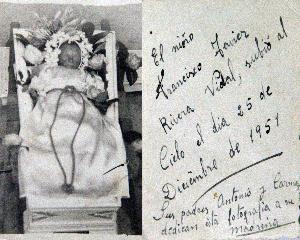 El niño
Francisco Javier
Rivera Vidal, subió al
Cielo el dia 25 de
Diciembre de 1951
Sus padres Antonio y Carmen
dedican esta fotografia a su
Madrina